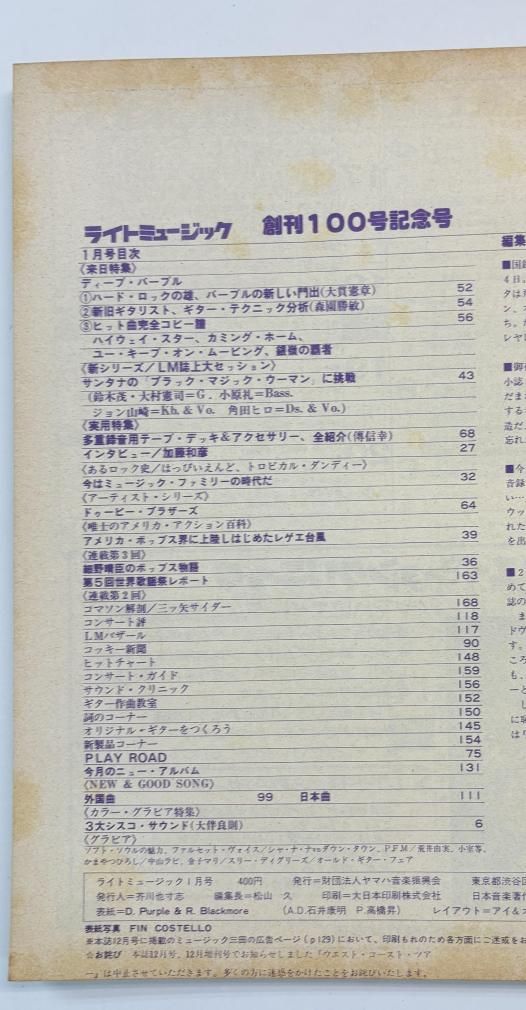 ライトミュージック 創刊100号記念号
1月号目次
〈来日特集〉
ディープ・パープル
①ハード・ロックの雄、パープルの新しい門出(大貫憲章) 52
②新旧ギタリスト、ギター・テクニック分析(森園勝敏) 54
③ヒット曲完全コピー譜 56
ハイウェイ・スター、カミング・ホーム、
ユー・キープ・オン・ムービング、銀嶺の覇者
〈新シリーズ/LM誌上大セッション〉
サンタナの「ブラック・マジック・ウーマン」に挑戦 43
(鈴木茂・大村憲司=G. 小原礼=Bass.
ジョン山崎=Kb. & Vo. 角田ヒロ=Ds. & Vo.)
〈実用特集〉
多重録音用テープ・デッキ&アクセサリー、全紹介(傳信幸) 68
インタビュー/加藤和彦 27
〈あるロック史/はっぴいえんど、トロピカル・ダンディー〉
今はミュージック・ファミリーの時代だ 32
〈アーティスト・シリーズ〉
ドゥービー・ブラザーズ 64
〈唯士のアメリカ・アクション百科〉
アメリカ・ポップス界に上陸しはじめたレゲエ台風 39
〈連載第3回〉
細野晴臣のポップス物語 36
第5回世界歌謡祭レポート 163
〈連載第2回〉
コマソン解剖/三ッ矢サイダー 168
コンサート評 118
LMバザール 117
コッキー新聞 90
ヒットチャート 148
コンサート・ガイド 159
サウンド・クリニック 156
ギター作曲教室 152
詞のコーナー 150
オリジナル・ギターをつくろう 145
新製品コーナー 154
PLAY ROAD 75
今月のニュー・アルバム 131
〈NEW & GOOD SONG〉
外国曲 99 日本曲 111
〈カラー・グラビア特集〉
3大シスコ・サウンド(大伴良則) 6
〈グラビア〉
ソフト・ソウルの魅力、ファルセット・ヴォイス/シャ・ナ・ナvsダウン・タウン、P.F.M/荒井由実、小室等、
かまやつひろし/中山ラビ、金子マリ/スリー・ディグリーズ/オールド・ギター・フェア
ライトミュージック1月号 400円 発行=財団法人ヤマハ音楽振興会 東京都渋谷区
発行人=芥川也寸志 編集長=松山 久 印刷=大日本印刷株式会社 日本音楽著作
表紙=D. Purple & R. Blackmore (A.D.石井康明 P.高橋昇) レイアウト=アイ&
表紙写真 FIN COSTELLO
※本誌12月号に掲載のミュージック三田の広告ページ(p129)において、印刷もれのため各方面にご迷惑をお
☆お詫び 本誌12月号、12月増刊号でお知らせしました「ウエスト・コースト・ツア
ー」は中止させていただきます。多くの方に迷惑をかけたことをお詫びいたします。
編集
■国鉄
4日。
ち。
■御
小誌
だま
する
造だ
忘れ
■今
音録
い…
ウッ
れた
を出
■2
めて
誌の
ま
ドヴ
す。
ころ
も、
ーと
し
に恥
は